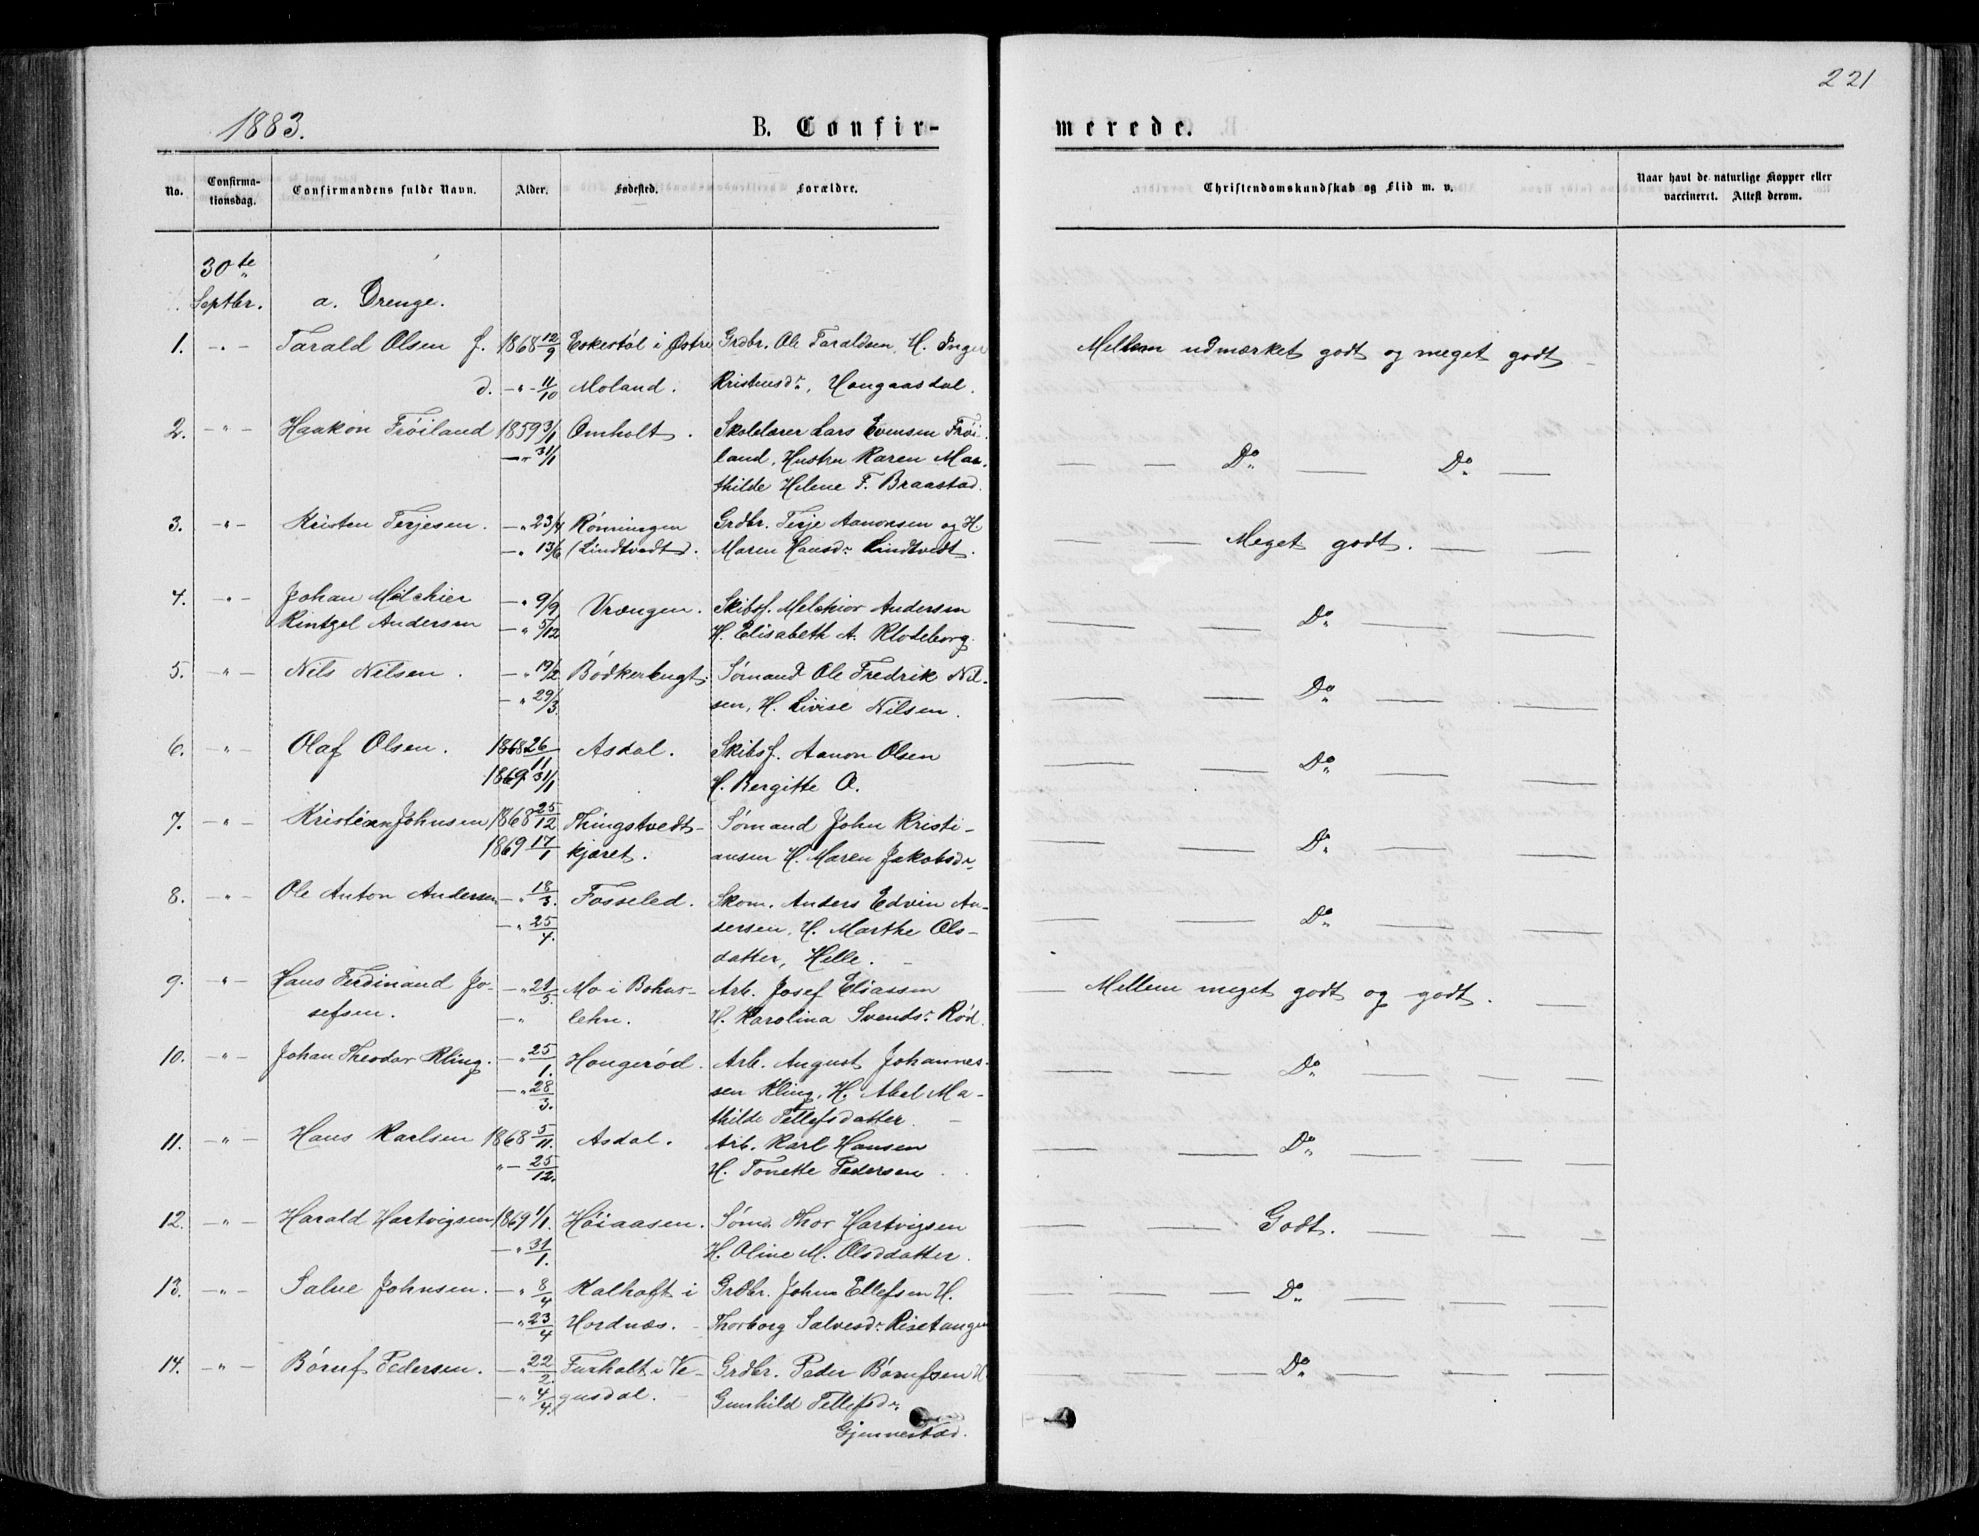 221
1883.
B. Confirmerede.
No. Confirmationsdag. Confirmandens fulde Navn. Alder. Fødested. Forældre. Christendomskundskab og Flid m. v. Naar havt de naturlige Kopper eller vaccineret. Attest derom.
30te Septbr. a. Drenge.
1. -"- Tarald Olsen f. 1868 12/9 Eskestøl i Østre Grdbr. Ole Taraldsen, H. Inger Mellem udmærket godt og meget godt
d. -"- 11/10 Moland. Kristensdr., Haugaasdal.
2. -"- Haakon Frøiland 1859 3/1 Omholt. Skolelærer Lars Evensen Frøi-
-"- 31/1 land, Hustru Karen Ma- Do Do
thilde Helene F. Braastad.
3. -"- Kristen Terjesen. -"- 23/4 Rønningen Grdbr. Terje Aanonsen og H. Meget godt.
-"- 13/6 (Lindtvedt). Maren Hansdr Lindtvedt.
4. -"- Johan Melchier -"- 9/9 Vrængen. Skibsf. Melchior Andersen Do
Rintzel Andersen -"- 5/12 H. Elisabeth A. Kloteborg.
5. -"- Nils Nilsen. -"- 19/2 Bødkerbugt. Sømand Ole Fredrik Nil- Do
-"- 29/3. sen, H. Livise Nilsen.
6. -"- Olaf Olsen. 1868 26/11 Asdal. Skibsf. Aanon Olsen Do
1869 31/1 H. Bergitte O.
7. -"- Kristian Johnsen 1868 25/12 Thingstvedt- Sømand John Kristi- Do
1869 17/1 kjæret. ansen H. Maren Jakobsdr
8. -"- Ole Anton Andersen -"- 18/3. Fosseled. Skom. Anders Edvin An- Do
-"- 25/4. dersen, H. Marthe Ols-
datter, Hille.
9. -"- Hans Ferdinand Jo- -"- 21/5. Mo i Bohus- Arb. Josef Eliassen Mellem meget godt og godt.
sefsen. -"- lehn. H. Karolina Svendsr Rød.
10. -"- Johan Theodor Kling. -"- 25/1. Hougerød. Arb. August Johannes- Do
-"- 28/3. sen Kling, H. Abel Ma-
thilde Tellefsdatter.
11. -"- Hans Karlsen 1868 5/11. Asdal. Arb. Karl Hansen Do
"- 25/12. H. Tonette Pedersen.
12. -"- Harald Hartvigsen 1869 1/1. Høiaasen. Sømd. Thor Hartvigsen Godt.
-"- 31/1. H. Oline M. Olsdatter.
13. -"- Salve Johnsen. -"- 8/4 Kalhoft i Grdbr. John Ellefsen H. Do
-"- 23/4 Hordnæs. Thorborg Salvesdr Risetangen
14. -"- Børuf Pedersen. -"- 22/2. Furholt i Ve- Grdbr. Peder Børufsen H. Do
-"- 4/4. gusdal. Gunhild Tellefsdr
Gjennestad.